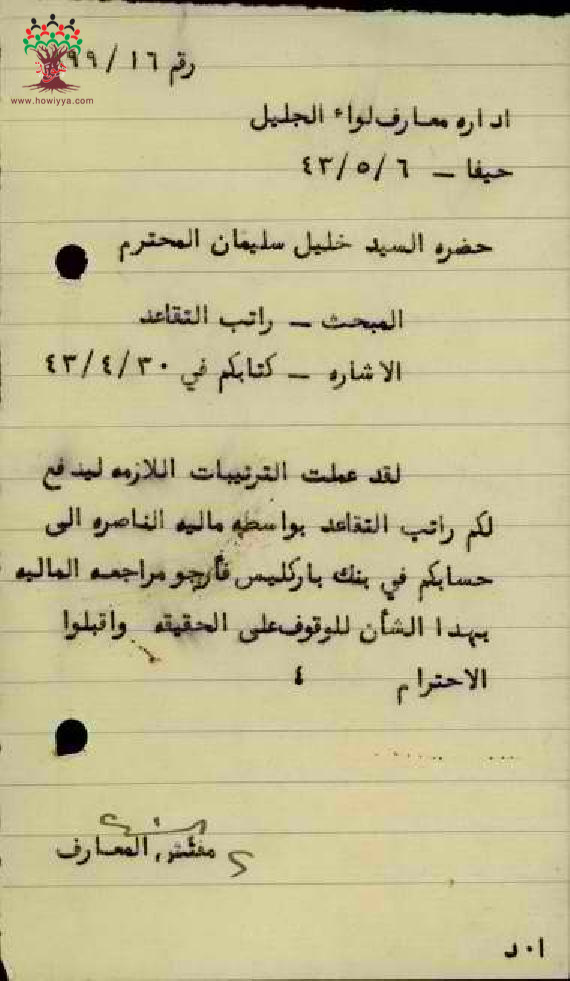 www.howiyya.com
رقم ١٦/ ٩٩
اداره معارف لواء الجليل
حيفا – ٤٣/٥/٦
حضره السيد خليل سليمان المحترم
المبحث – راتب التقاعد
الاشاره – كتابكم في ٤٣/٤/٣٠
لقد عملت الترتيبات اللازمه ليدفع
لكم راتب التقاعد بواسطه ماليه الناصره الى
حسابكم في بنك باركليس فأرجو مراجعه الماليه
بهذا الشأن للوقوف على الحقيقه واقبلوا
الاحترام ٤
مفتش المعارف
ا٠د